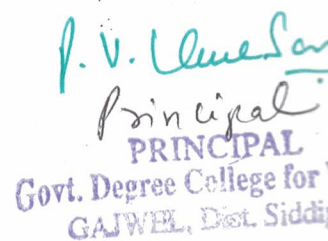 P. V.
Principal
PRINCIPAL
Govt. Degree College for
GAJWEL, Dist. Siddi